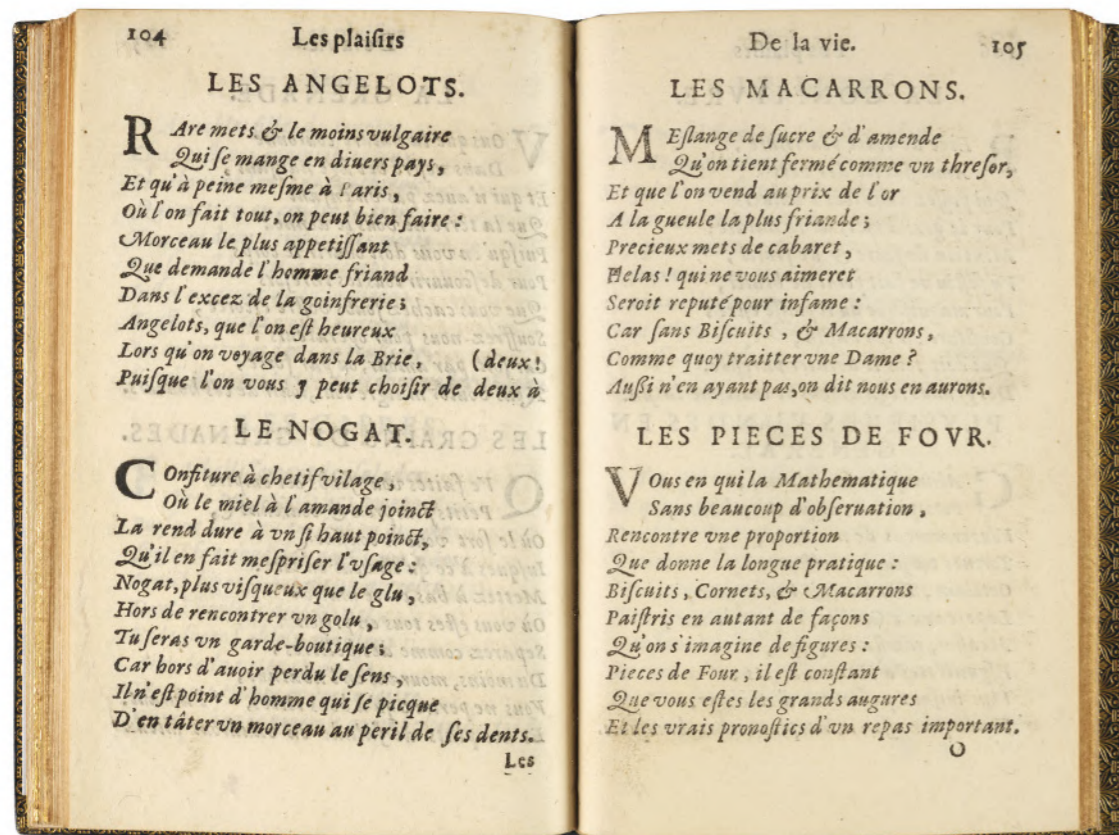 104 Les plaiſirs
LES ANGELOTS.
RAre mets & le moins vulgaire
Qui ſe mange en diuers pays,
Et qu'à peine meſme à Paris,
Où l'on fait tout, on peut bien faire :
Morceau le plus appetiſſant
Que demande l'homme friand
Dans l'excez de la goinfrerie ;
Angelots, que l'on eſt heureux
Lors qu'on voyage dans la Brie, (deux !
Puiſque l'on vous y peut choiſir de deux à
LE NOGAT.
COnfiture à chetif vilage,
Où le miel à l'amande joinct
La rend dure à vn ſi haut poinct,
Qu'il en fait meſpriſer l'vſage :
Nogat, plus viſqueux que le glu,
Hors de rencontrer vn golu,
Tu ſeras vn garde-boutique ;
Car hors d'auoir perdu le ſens,
Il n'eſt point d'homme qui ſe picque
D'en tâter vn morceau au peril de ſes dents.
Les
De la vie. 105
LES MACARRONS.
MEſlange de ſucre & d'amende
Qu'on tient fermé comme vn threſor,
Et que l'on vend au prix de l'or
A la gueule la plus friande ;
Precieux mets de cabaret,
Helas ! qui ne vous aimeret
Seroit reputé pour infame :
Car ſans Biſcuits, & Macarrons,
Comme quoy traitter vne Dame ?
Auſſi n'en ayant pas, on dit nous en aurons.
LES PIECES DE FOVR.
VOus en qui la Mathematique
Sans beaucoup d'obſeruation,
Rencontre vne proportion
Que donne la longue pratique :
Biſcuits, Cornets, & Macarrons
Paiſtris en autant de façons
Qu'on s'imagine de figures :
Pieces de Four, il eſt conſtant
Que vous eſtes les grands augures
Et les vrais pronoſtics d'vn repas important.
O